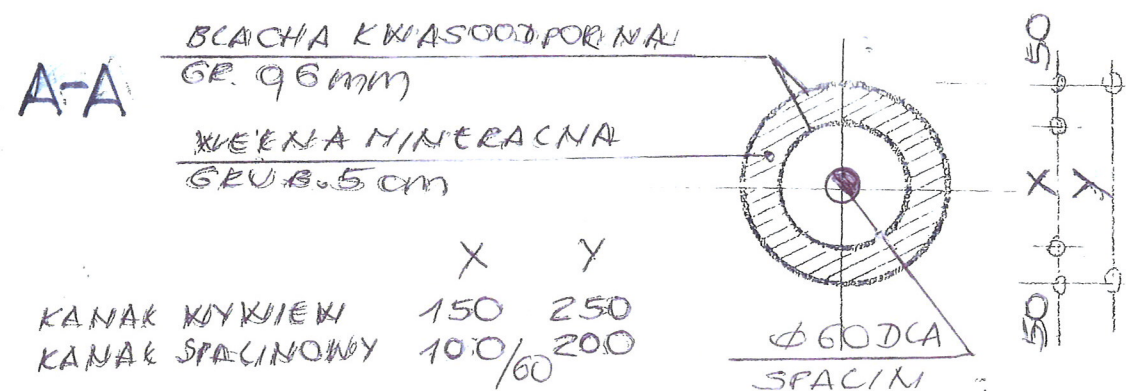 A-A
BLACHA KWASOODPORNA
GR. 0,6mm
WEŁNA MINERALNA
GRUB. 5 cm
X Y
KANAŁ WYWIEW 150 250
KANAŁ SPALINOWY 100/60 200
Φ60 DLA
SPALIN
50
X
Y
50